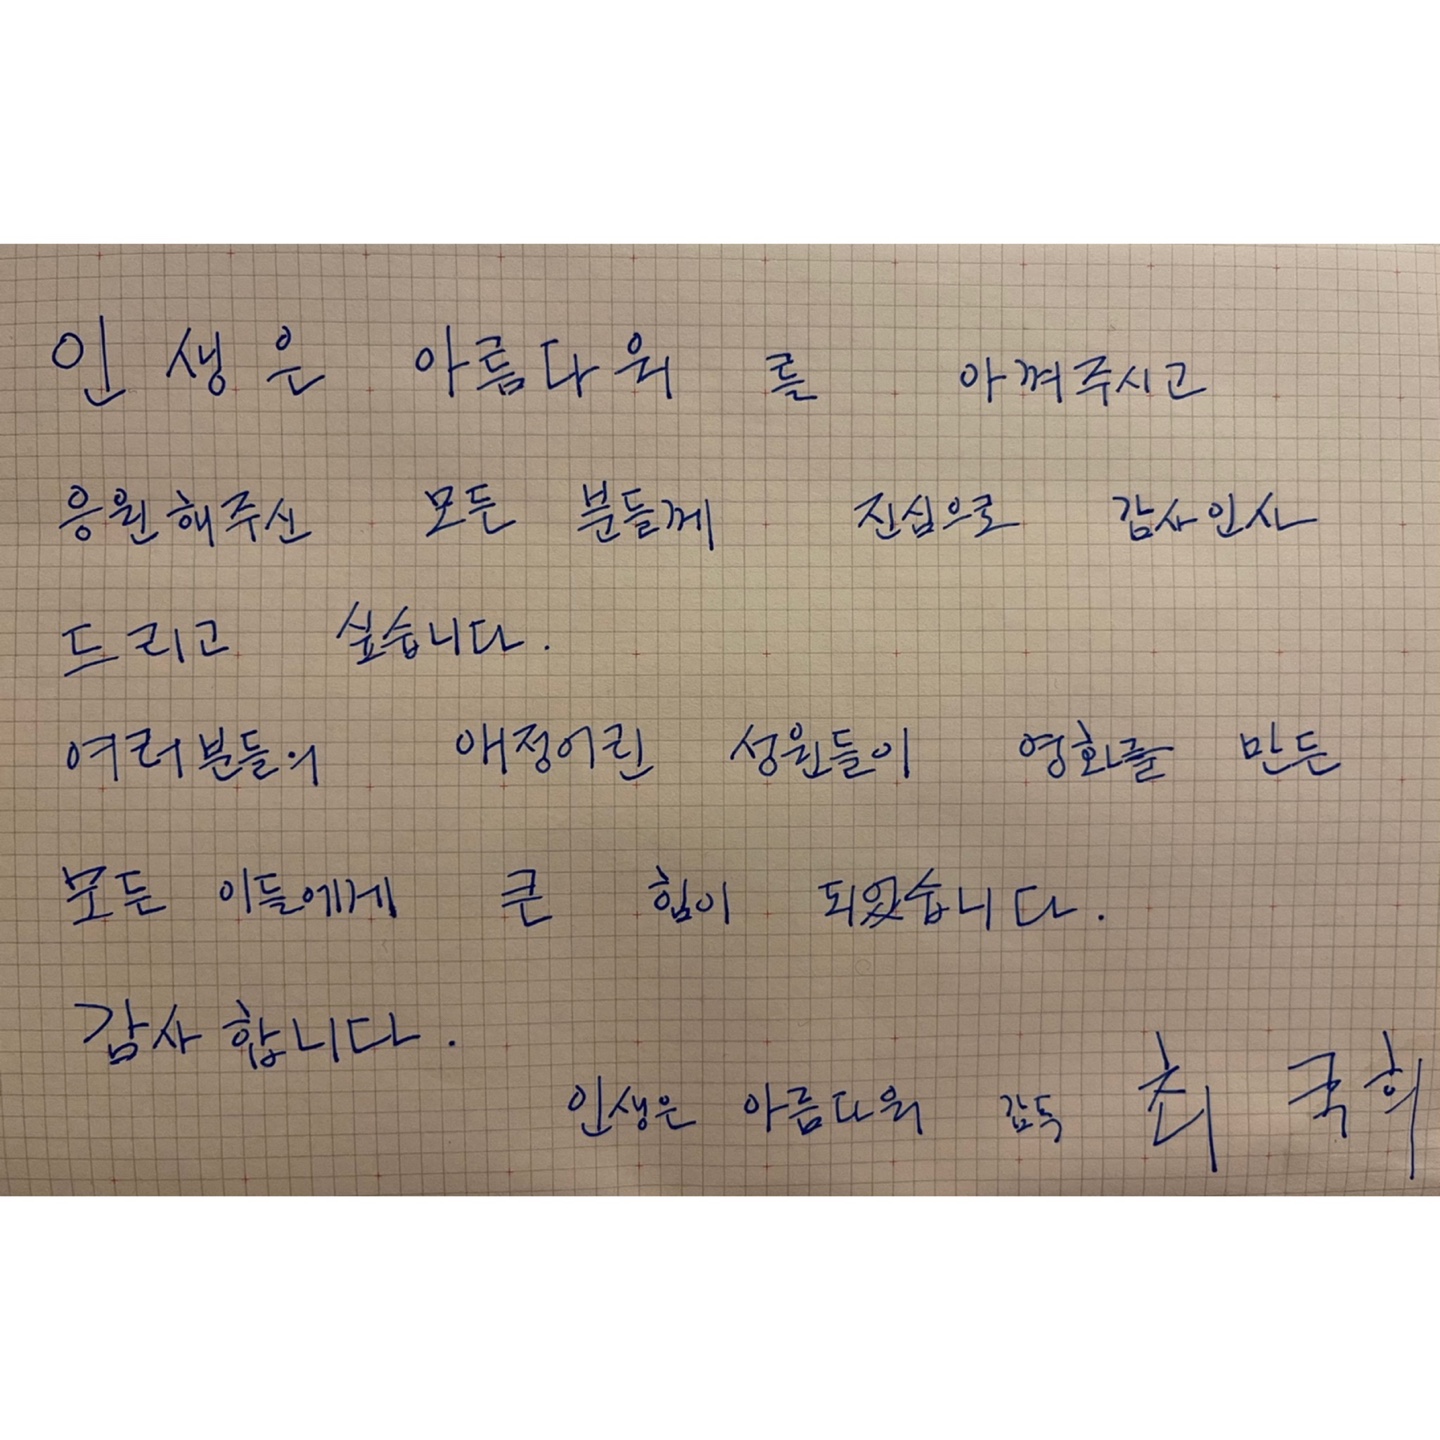 인생은 아름다워를 아껴주시고
응원해주신 모든 분들께 진심으로 감사인사
드리고 싶습니다.
여러분들의 애정어린 성원들이 영화를 만든
모든 이들에게 큰 힘이 되었습니다.
감사합니다.
인생은 아름다워 감독 최국희